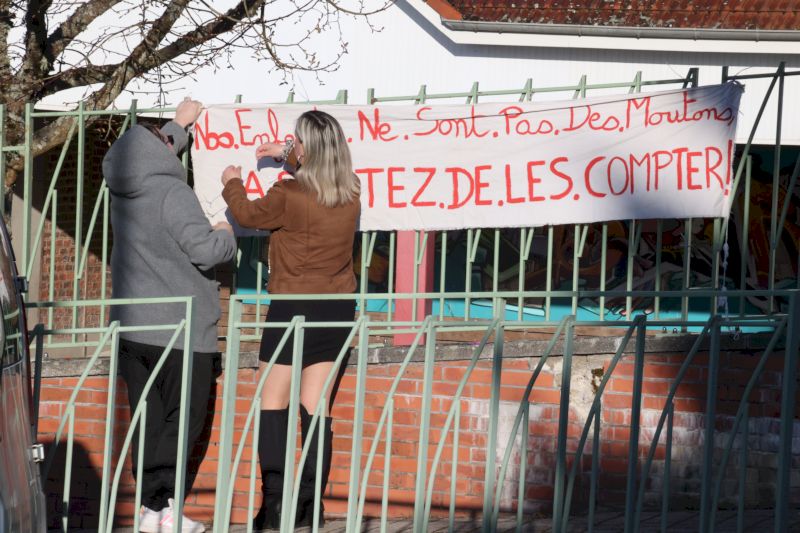 Nos.Enfants.Ne.Sont.Pas.Des.Moutons,
ARRETEZ.DE.LES.COMPTER!